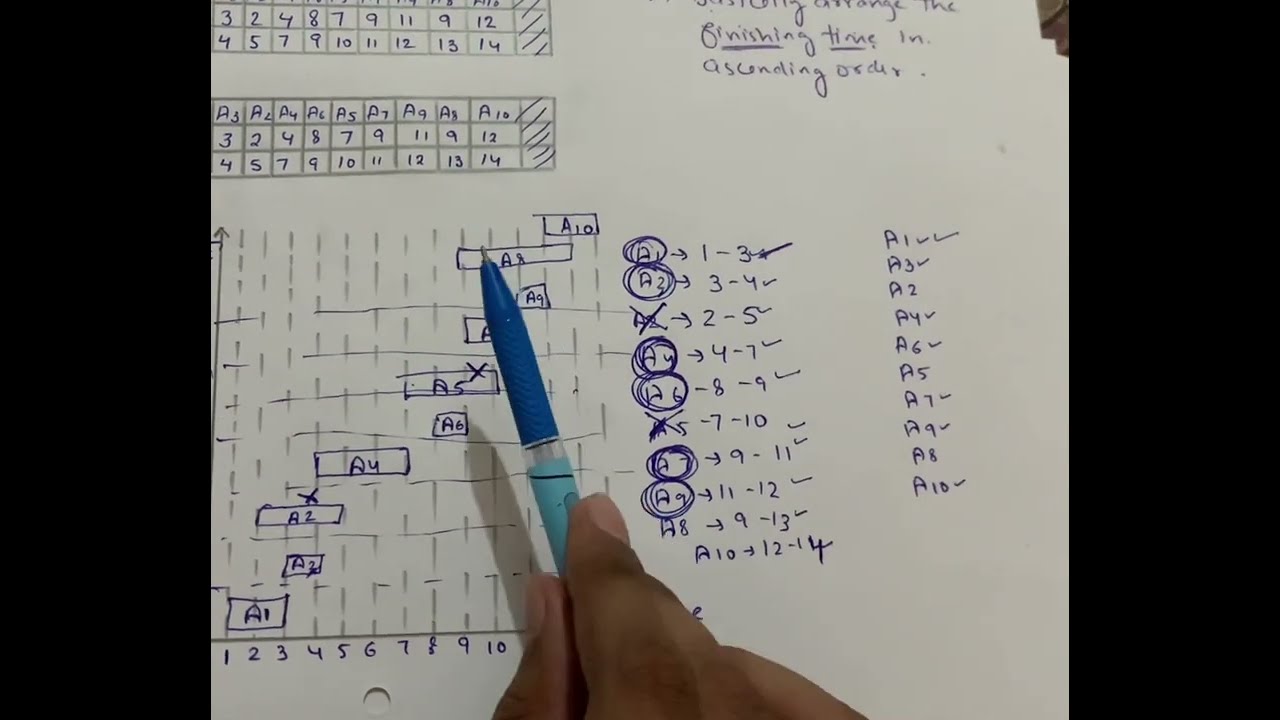 3 2 4 8 7 9 11 9 12
4 5 7 9 10 11 12 13 14
arrange the
finishing time in.
ascending order.
A3 A2 A4 A6 A5 A7 A9 A8 A10
3 2 4 8 7 9 11 9 12
4 5 7 9 10 11 12 13 14
A10
A8
A9
A
A5
A6
A4
A2
A3
A1
1 2 3 4 5 6 7 8 9 10
A1 → 1 - 3
A3 → 3 - 4
A2 → 2 - 5
A4 → 4 - 7
A6 - 8 - 9
A5 - 7 - 10
A7 → 9 - 11
A9 → 11 - 12
A8 → 9 - 13
A10 → 12 - 14
A1
A3
A2
A4
A6
A5
A7
A9
A8
A10